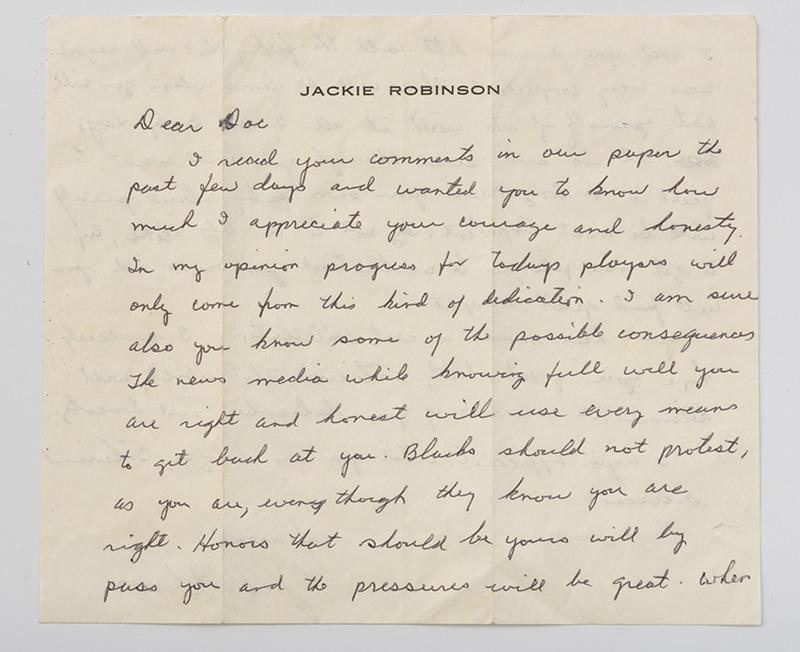 JACKIE ROBINSON
Dear Doc
I read your comments in our paper the
past few days and wanted you to know how
much I appreciate your courage and honesty.
In my opinion progress for todays players will
only come from this kind of dedication. I am sure
also you know some of the possible consequences
The news media while knowing full well you
are right and honest will use every means
to get back at you. Blacks should not protest,
as you are, even though they know you are
right. Honors that should be yours will by
pass you and the pressures will be great. When